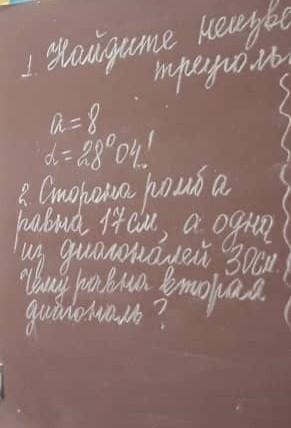 1. Найдите
a = 8
α = 28°04'.
2. Сторона ромба
равна 17см, а одна
из диагоналей 30см.
Чему равна вторая
диагональ?